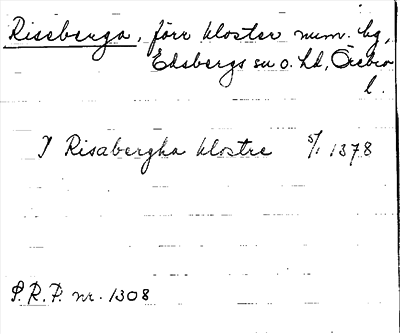 Riseberga, förr kloster num. hg,
Edsbergs sn o. hd, Örebro
l.
J Risabergha klostre 5/1 1378
S.R.P. nr. 1308